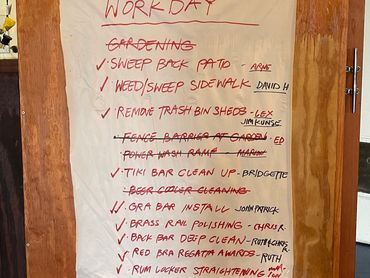 WORKDAY
GARDENING
✓ SWEEP BACK PATO - ARNE
✓ WEED/SWEEP SIDEWALK DAVID H
✓ REMOVE TRASH BIN SHEDS - LEX
JIM KUNSE
FENCE BARRIER AT GARDEN - ED
POWER WASH RAMP -
✓ TIKI BAR CLEAN UP - BRIDGETTE
BEER COOLER CLEANING
✓ GRA BAR INSTALL - JOHN PATRICK
✓ BRASS RAIL POLISHING - CHRIS R.
✓ BACK BAR DEEP CLEAN - RUTH & CHRIS R.
✓ RED BRA REGATTA AWARDS - RUTH
✓ RUM LOCKER STRAIGHTENING